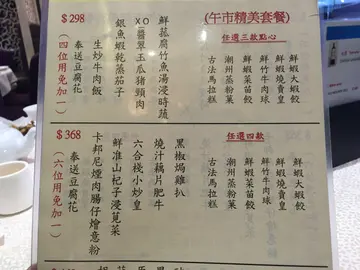 (午市精美套餐)
任選三款點心
鮮蝦大蝦餃
鮮蝦燒賣皇
鮮竹牛肉球
鮮蝦菜苗餃
潮州蒸粉菓
古法馬拉糕
鮮菰腐竹魚湯浸時蔬
XO醬翠玉瓜豬頸肉
銀魚蝦乾蒸茄子
生炒牛肉飯
泰送豆腐花
$298
(四位用免加一)
任選四款
鮮蝦大蝦餃
鮮蝦燒賣皇
鮮竹牛肉球
鮮蝦菜苗餃
潮州蒸粉菓
古法馬拉糕
黑椒焗雞扒
燒汁藕片肥牛
六合棧小炒皇
鮮淮山杞子浸莧菜
卡邦尼煙肉腸仔燴意粉
泰送豆腐花
$368
(六位用免加一)